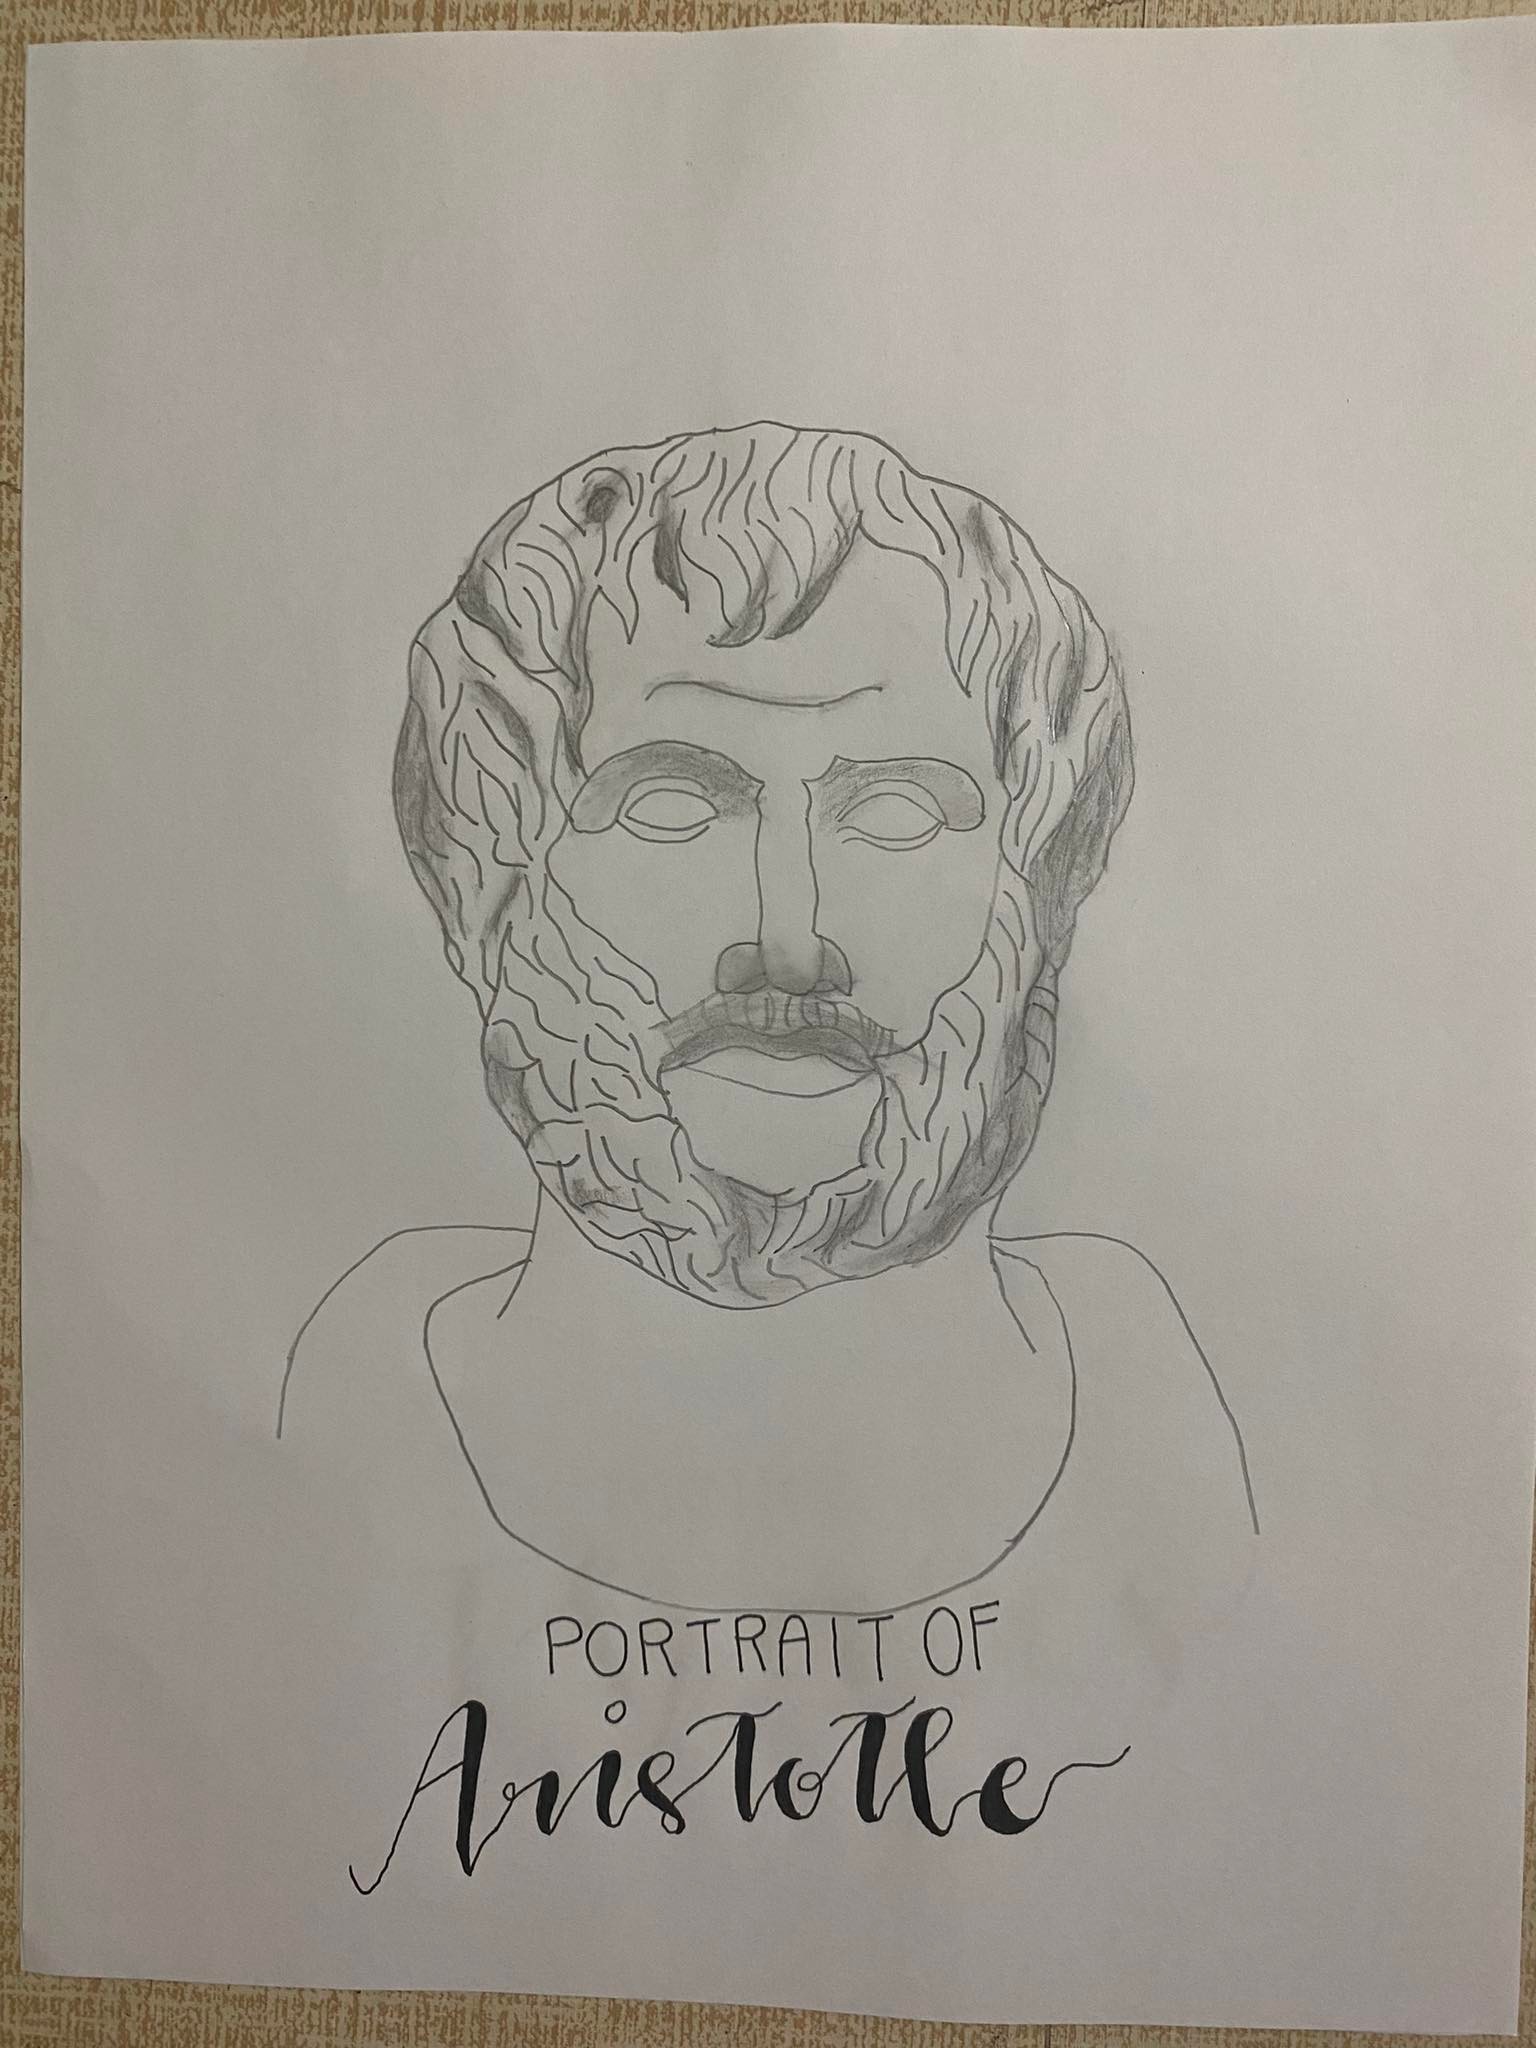 PORTRAIT OF
Aristotle